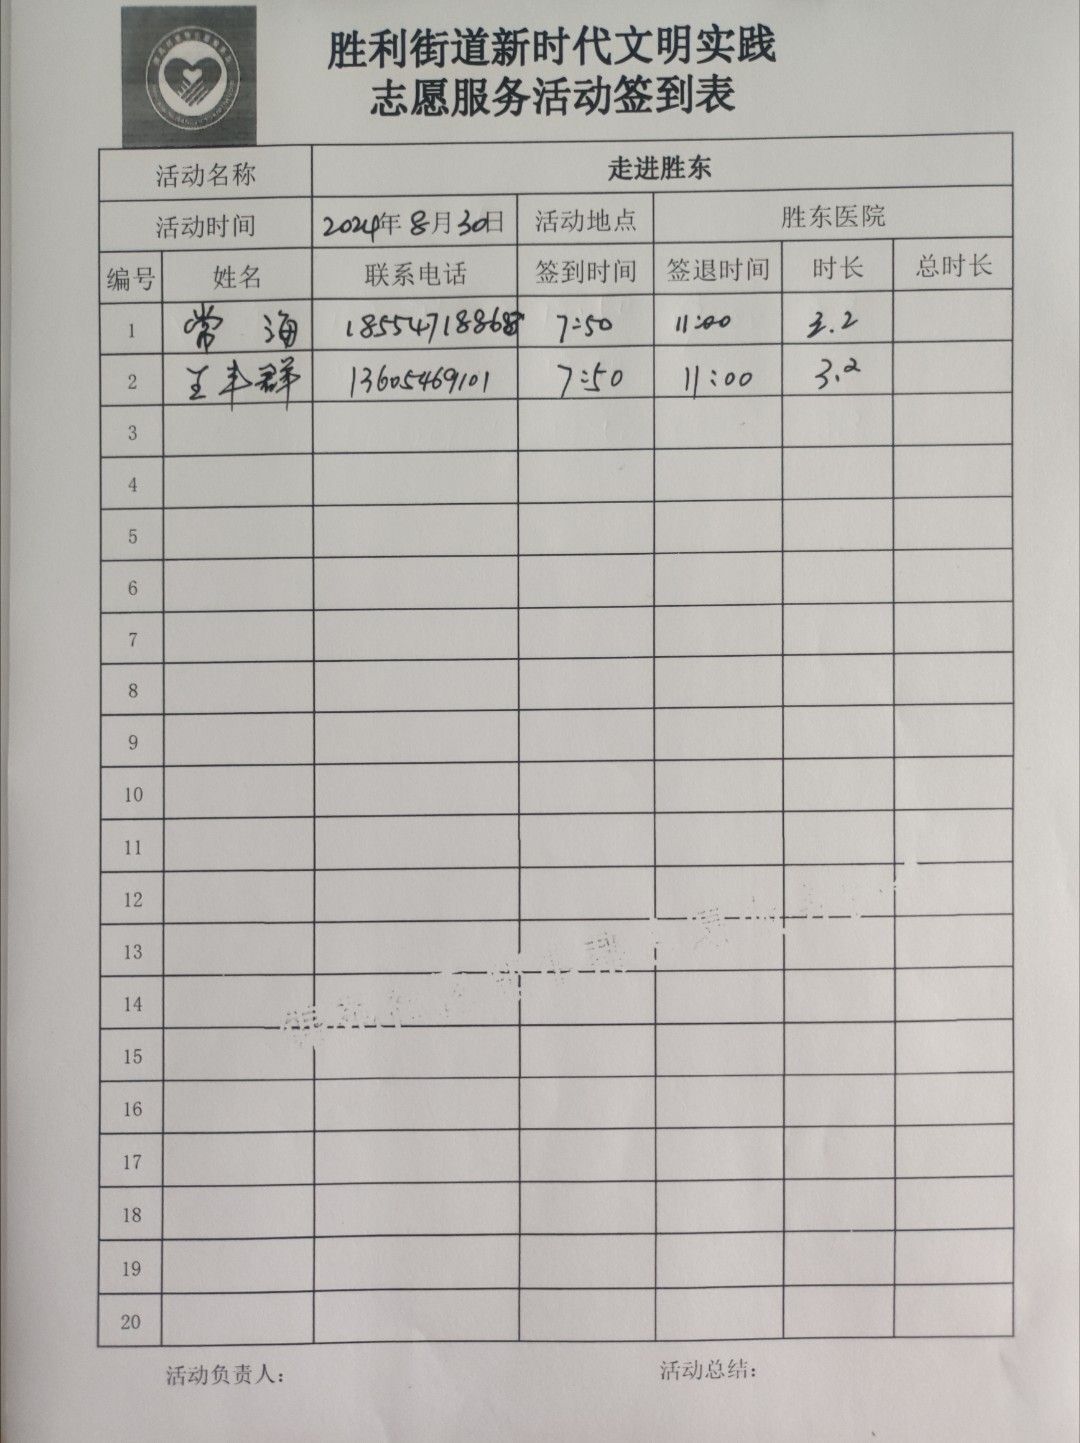 胜利街道新时代文明实践
志愿服务活动签到表
活动名称 走进胜东
活动时间 2024年8月30日 活动地点 胜东医院
编号 姓名 联系电话 签到时间 签退时间 时长 总时长
1 常海 18554718868 7:50 11:00 3.2
2 王丰群 13605469101 7:50 11:00 3.2
3
4
5
6
7
8
9
10
11
12
13
14
15
16
17
18
19
20
活动负责人： 活动总结：